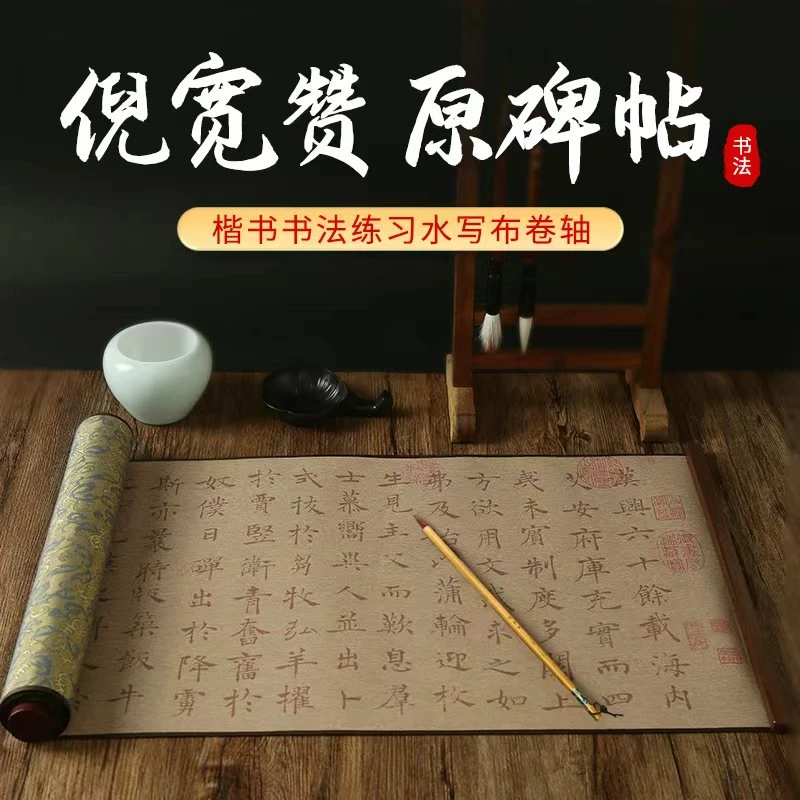 倪宽赞 原碑帖
书法
楷书书法练习水写布卷轴
漢興六十餘載海内
乂安府庫充實而四
夷未賓制度多闕上
方欲用文求之如
弗及始以蒲輪迎枚
生見主父而歎息羣
士慕嚮異人並出卜
式拔於芻牧弘羊擢
於賈豎衛青奮舊於
奴僕日磾出於降虜
斯亦曩時版築飯牛